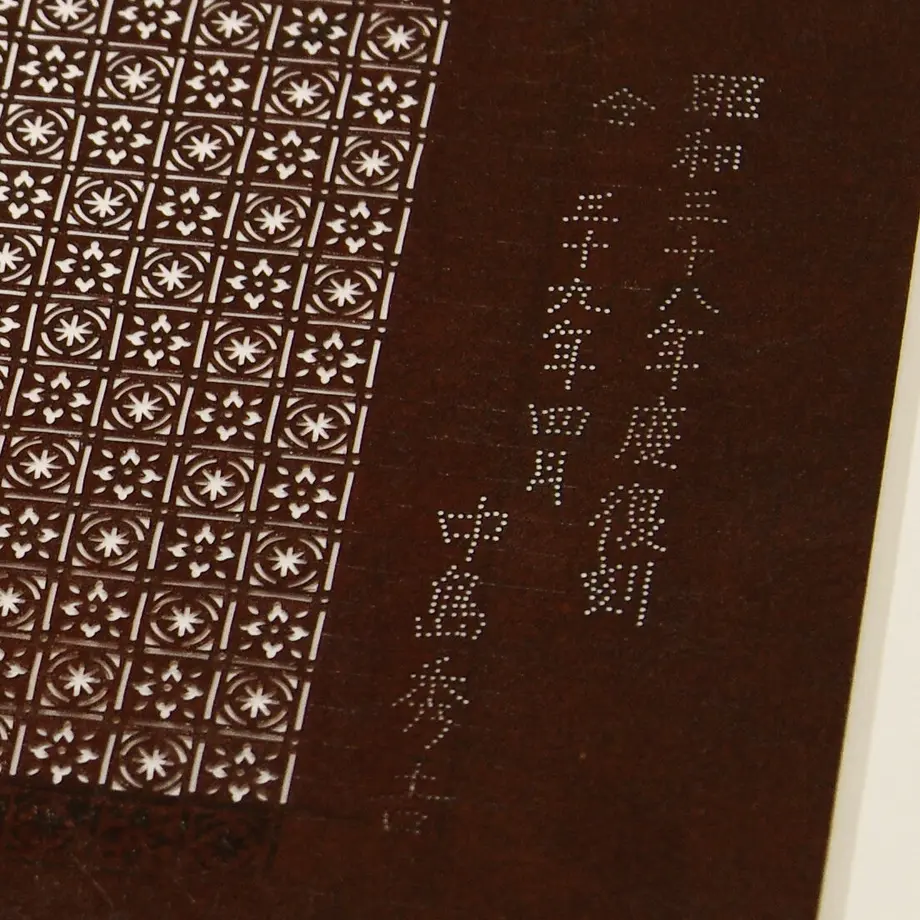 昭和三十八年度復刻
仝 十 年四月
中島秀吉